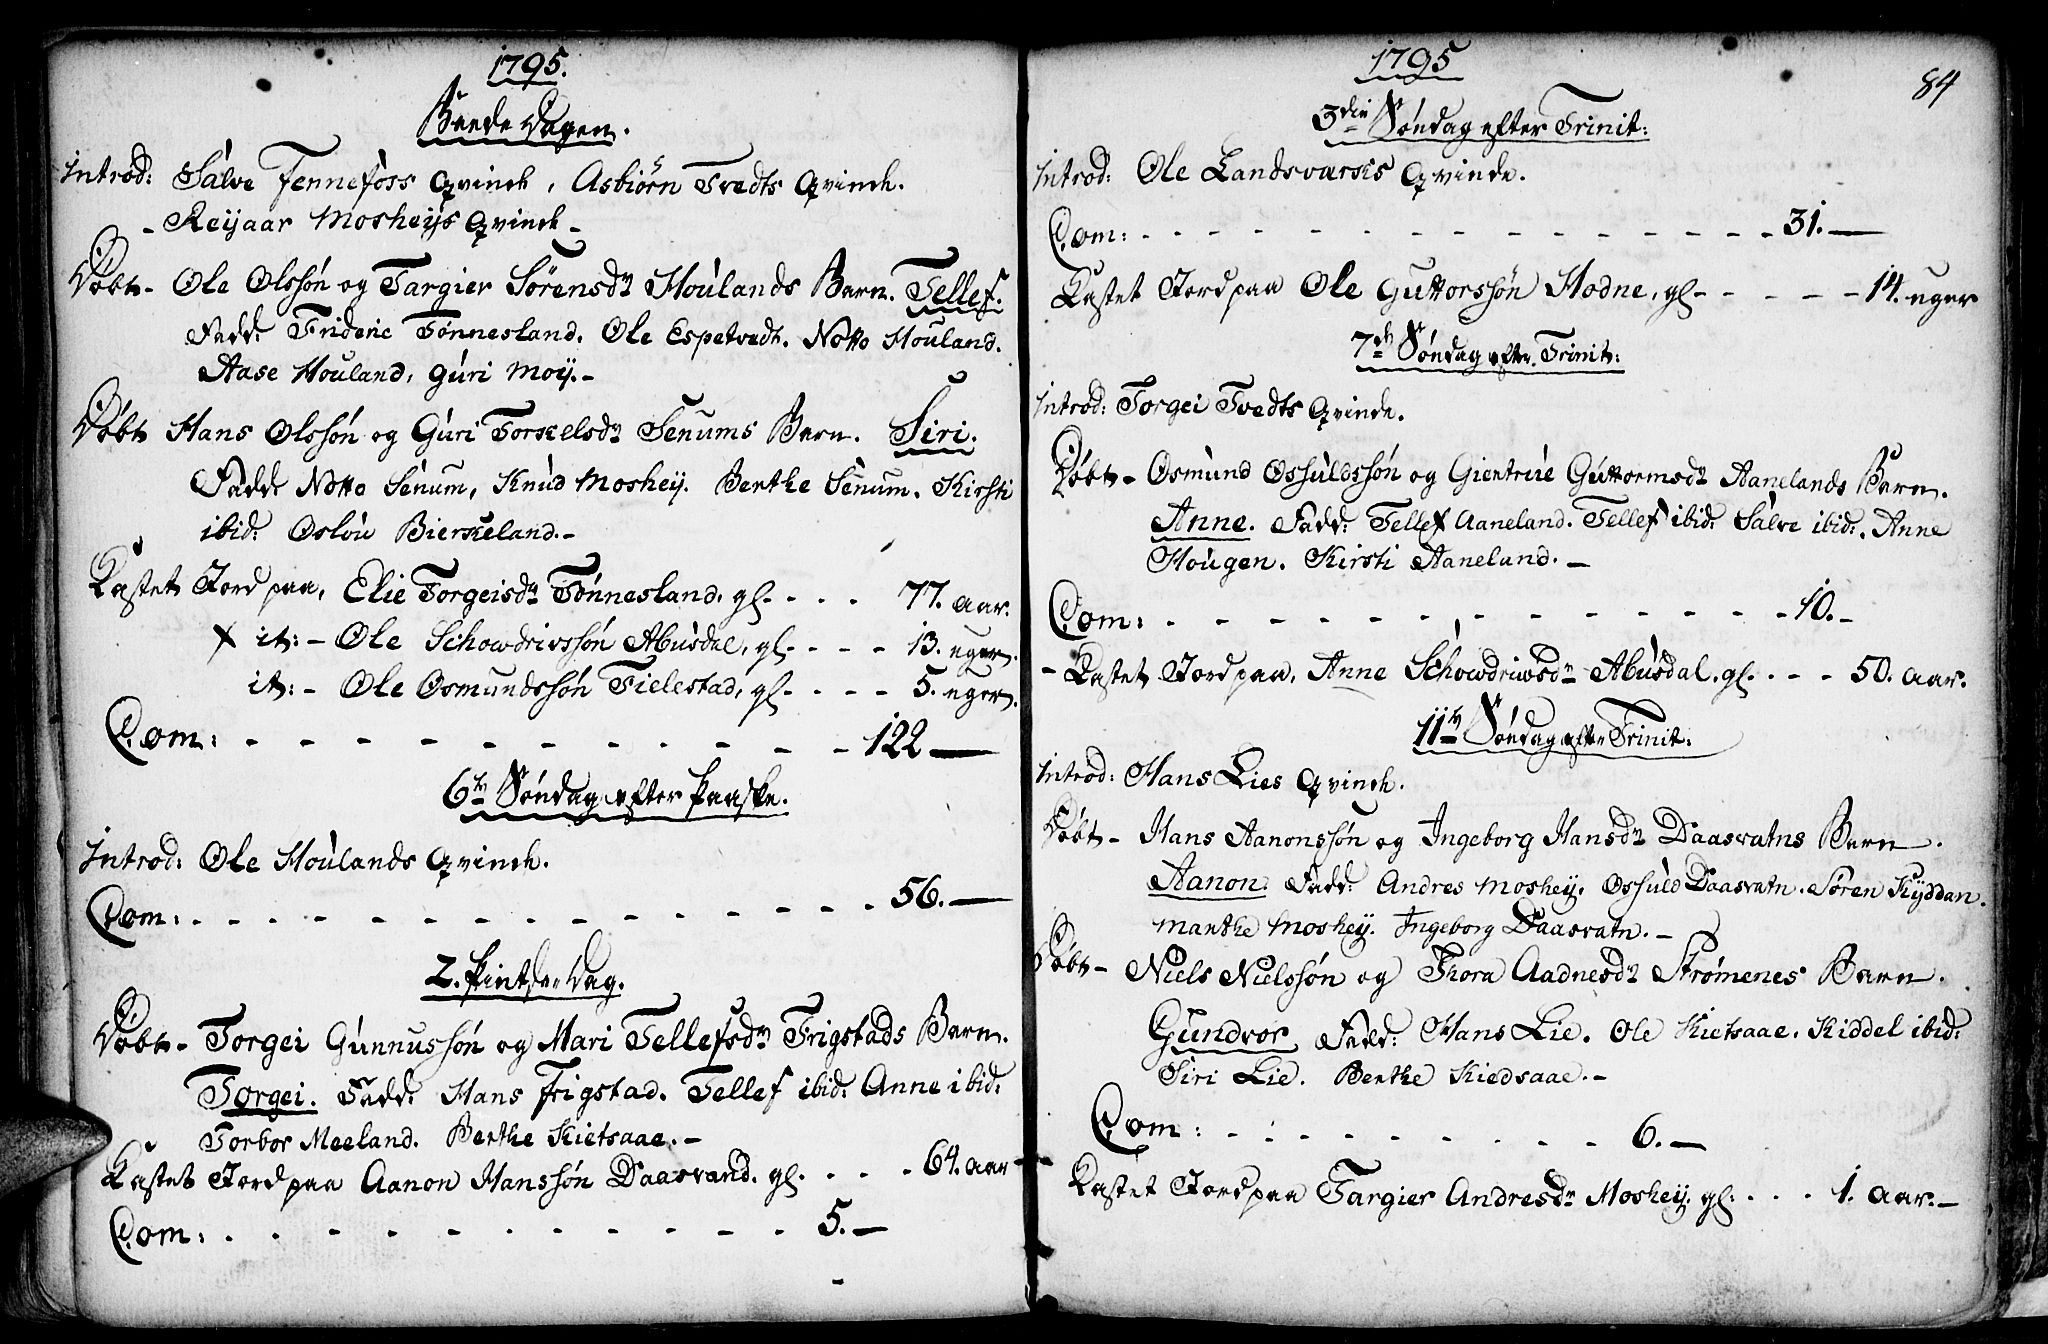 1795.
Beede Dagen.
Introd: Salve Fennefoss Qvinde, Asbiörn Tvedts Qvinde.
- Reijaar Mosheijs Qvinde -
Döbt - Ole Olssön og Targier Sörensdr Houlands Barn. Tellef.
Fadd: Frideric Tönnesland. Ole Espetvedt. Notto Houland.
Aase Houland, Guri Moij. -
Döbt Hans Olssön og Guri Torkelsdr Senums Barn. Siri.
Fadd: Notto Senum, Knud Moshey. Berthe Senum. Kirsti
ibid: Oslöu Bierkeland. -
Kastet Jord paa, Elie Torgeisdr Tönnesland. gl. - - - 77. aar.
x it: - Ole Schowdrivssön Abusdal, gl. - - - 13. uger.
it: - Ole Osmundssön Fielestad, gl. - - - 5. uger.
Com: - - - - - - - - - - - 122 —
6te Söndag efter Paaske.
Introd: Ole Houlands Qvinde.
Com: - - - - - - - - - - - - - 56. —
2. Pintse Dag.
Döbt - Torgei Gunnussön og Mari Tellefsdr Frigstads Barn.
Torgei. Fadd: Hans Frigstad. Tellef ibid: Anne ibid:
Torbor Meeland. Berthe Kietsaae. -
Kastet Jord paa Aanon Hanssön Daasvand. gl. . . . 64. aar
Com: - - - - - - - - - - - 5. —
1795
84
3die Söndag efter Trinit:
Introd: Ole Landsværks Qvinde.
Com: - - - - - - - - - - - - - - 31. —
Kastet Jord paa Ole Guttorssön Hodne, gl - - - - - 14. uger
7de Söndag efter Trinit:
Introd: Torgei Tvedts Qvinde.
Döbt - Osmund Ossuldssön og Gientrue Guttormsdr Aanelands Barn.
Anne. Fadd: Tellef Aaneland. Tellef ibid: Salve ibid: Anne
Hougen. Kirsti Aaneland. —
Com: - - - - - - - - - - - - 10. —
- Kastet Jord paa, Anne Schowdriwsdr Abusdal. gl. - - - 50. aar.
11te Söndag efter Trinit:
Introd: Hans Lies Qvinde.
Döbt - Hans Aanonssön og Ingeborg Hansdr Daasvatns Barn.
Aanon. Fadd: Andres Moshey. Ossuld Daasvatn. Sören Kyddan.
Marthe Moshey. Ingeborg Daasvatn. —
Döbt - Niels Nielssön og Thora Aadnesdr Strömenes Barn.
Gundvor Fadd: Hans Lie. Ole Kietsaae. Kiddel ibid:
Siri Lie. Berthe Kiedsaae. -
Com: - - - - - - - - 6. —
Kastet Jord paa Targier Andresdr Moshey. gl: . . . 1. aar. —